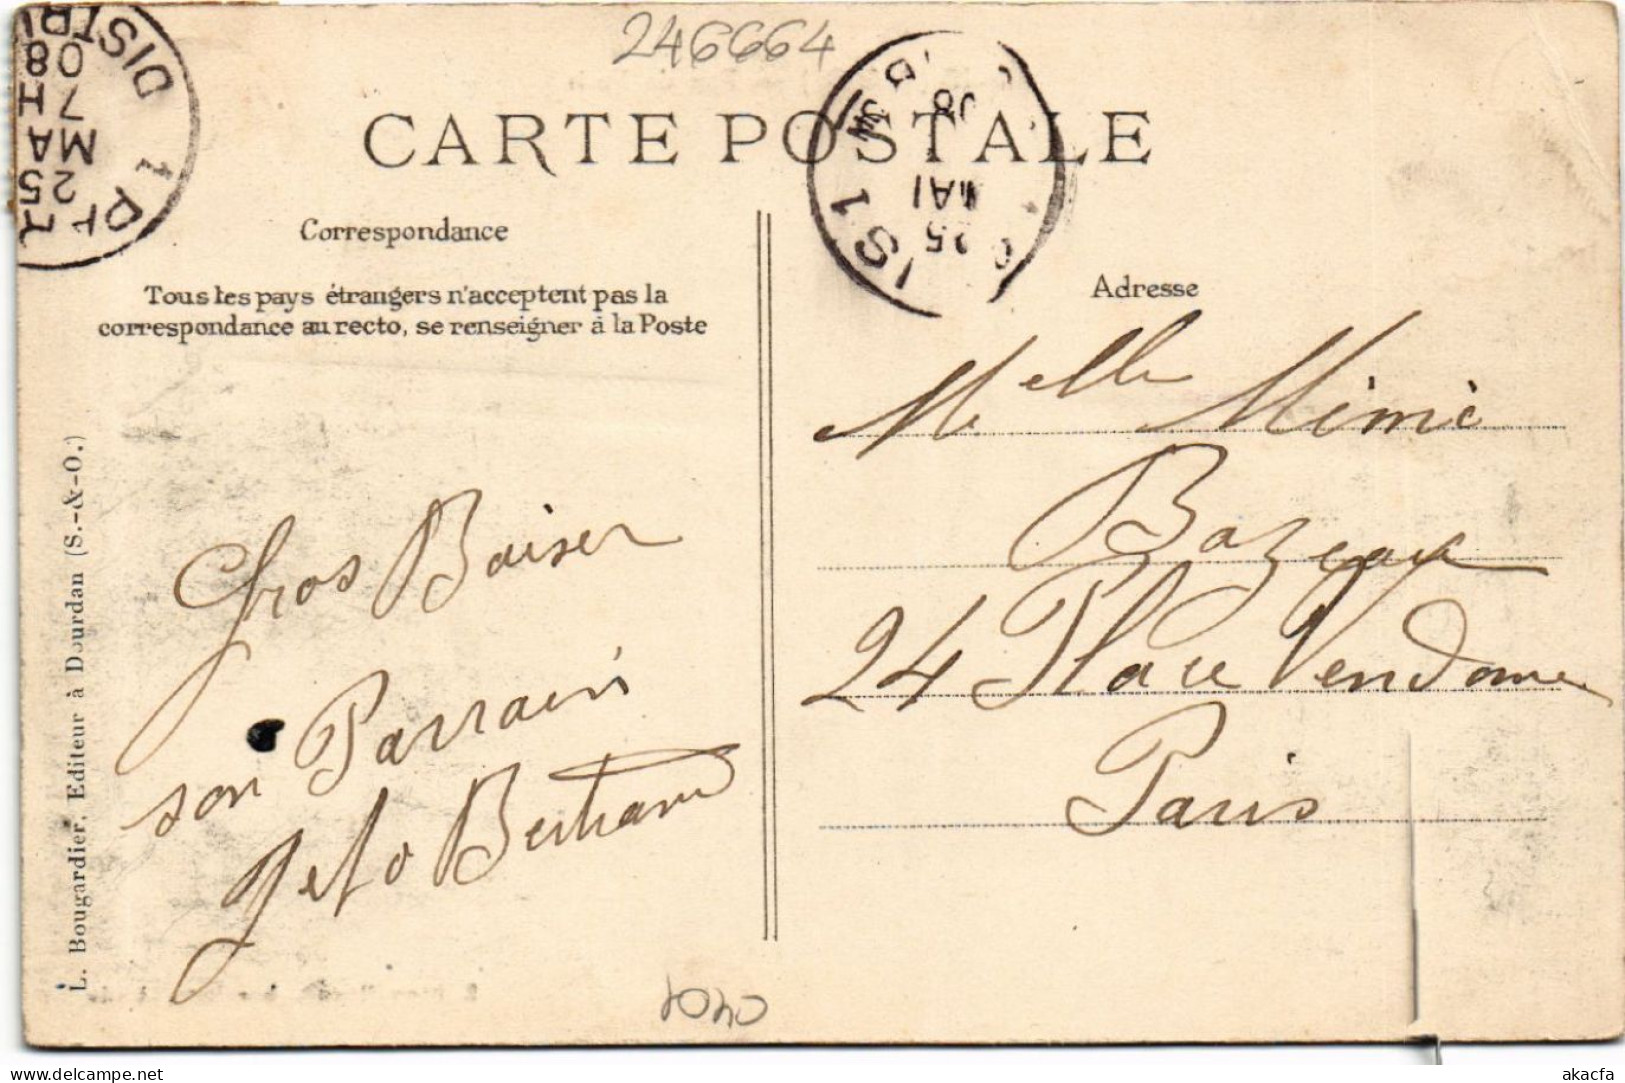 246664
CARTE POSTALE
DISTRI
08
7 H
MA
25
1
IS 1
25
MAI
08
Correspondance
Tous les pays étrangers n'acceptent pas la
correspondance au recto, se renseigner à la Poste
Gros Baiser
son Parrain
Bertrand
L. Bougardier, Editeur à Dourdan (S.-&-O.)
Adresse
Melle Mimi
Bazeaux
24 Place Vendome
Paris
akacfa